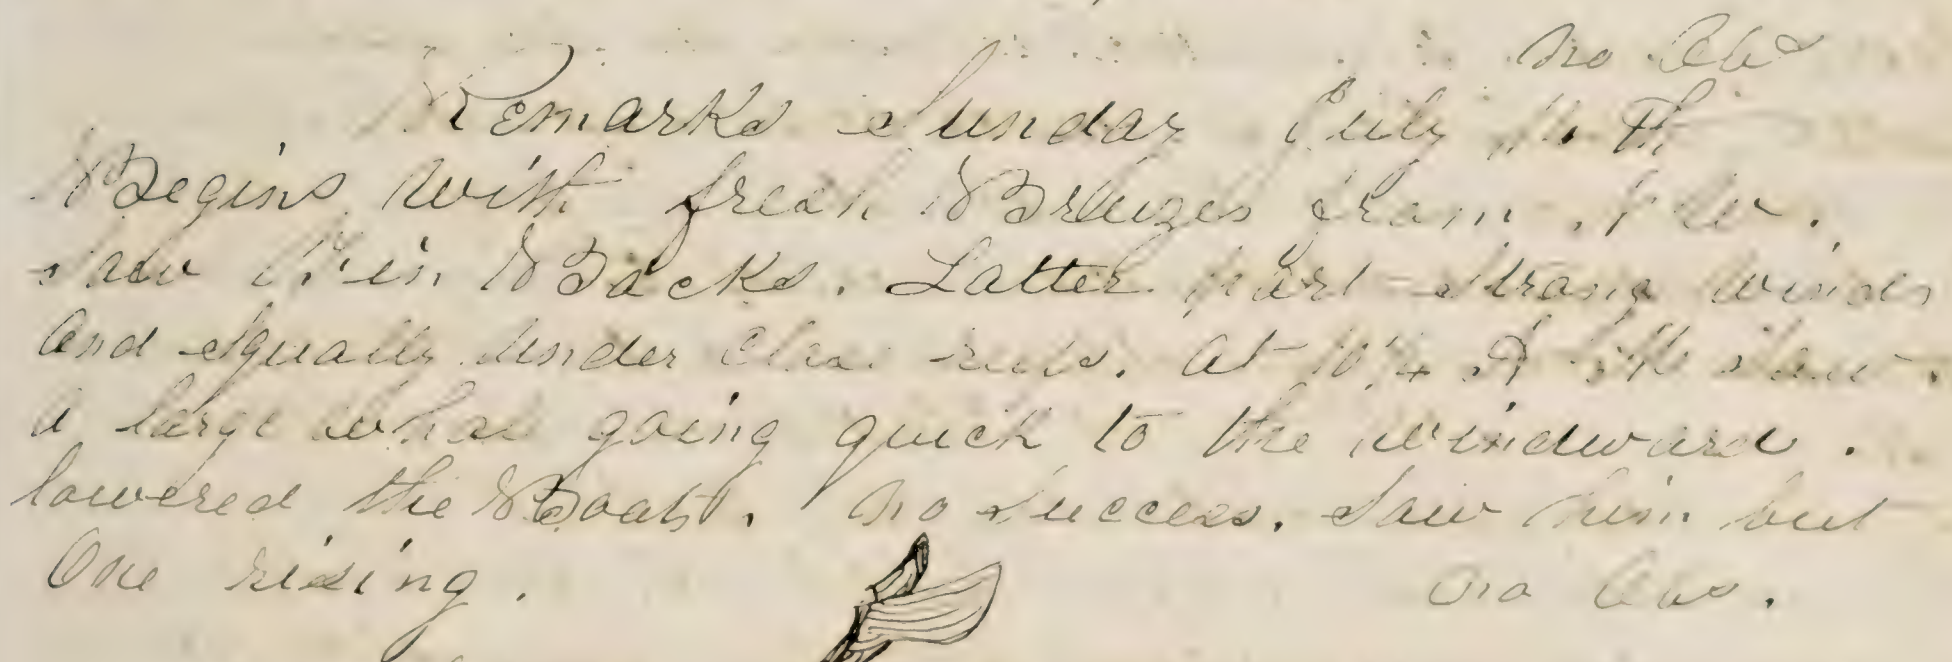 no Obs
Remarks Sunday July 11 th
Begins with fresh Breezes from S W.
saw Fin Backs. Latter part strong winds
and squally under close reefs. at A M saw
a large whale going quick to the windward.
lowered the Boats. no success. Saw him but
One rising.
no Obs.